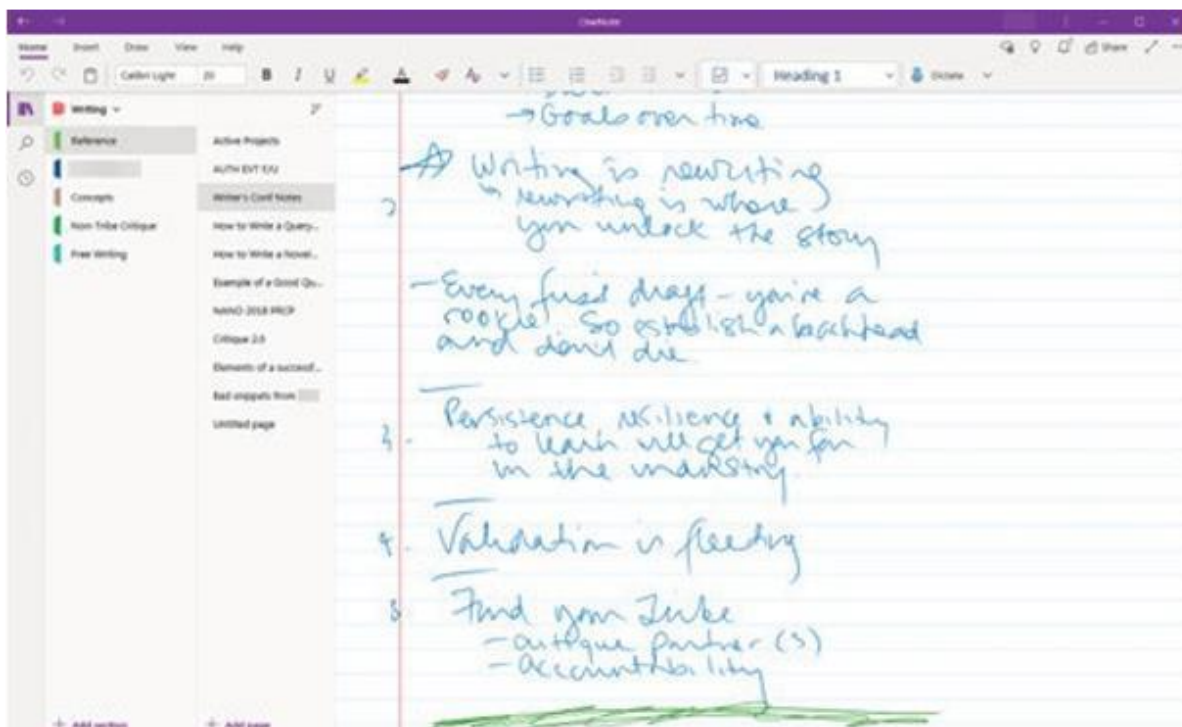 OneNote
Home Insert Draw View Help
Share
Calibri Light 20 B I U A Heading 1 Dictate
Writing
Reference
Concepts
Non-Tribe Critique
Free Writing
+ Add section
Active Projects
AUTH EVT
Writer's Conf Notes
How to Write a Query...
How to Write a Novel...
Example of a Good Qu...
NANO 2018 PREP
Critique 2.0
Elements of a successf...
Bad snippets from
Untitled page
+ Add page
→ Goals over time
Writing is rewriting
2 rewriting is where
you unlock the story
- Every first draft - you're a
rookie! So establish a beachhead
and don't die
3. Persistence, resilience + ability
to learn will get you far
in the industry.
4. Validation is fleeting
5 Find your Tribe
- critique partner(s)
- accountability